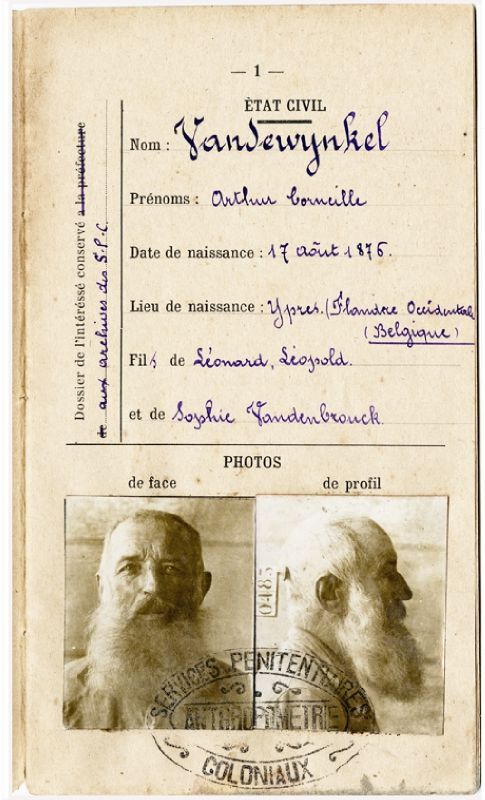 — 1 —
ÉTAT CIVIL
Nom : Vandewynkel
Prénoms : Arthur Corneille
Date de naissance : 17 août 1876.
Lieu de naissance : Ypres. (Flandre Occidentale
(Belgique)
Fils de Léonard, Léopold.
et de Sophie Vandenbrouck
Dossier de l'intéréssé conservé a la préfecture
de aux archives des S.P.C.
PHOTOS
de face de profil
0483
SERVICES PENITENTIAIRES
ANTHROPOMETRIE
COLONIAUX